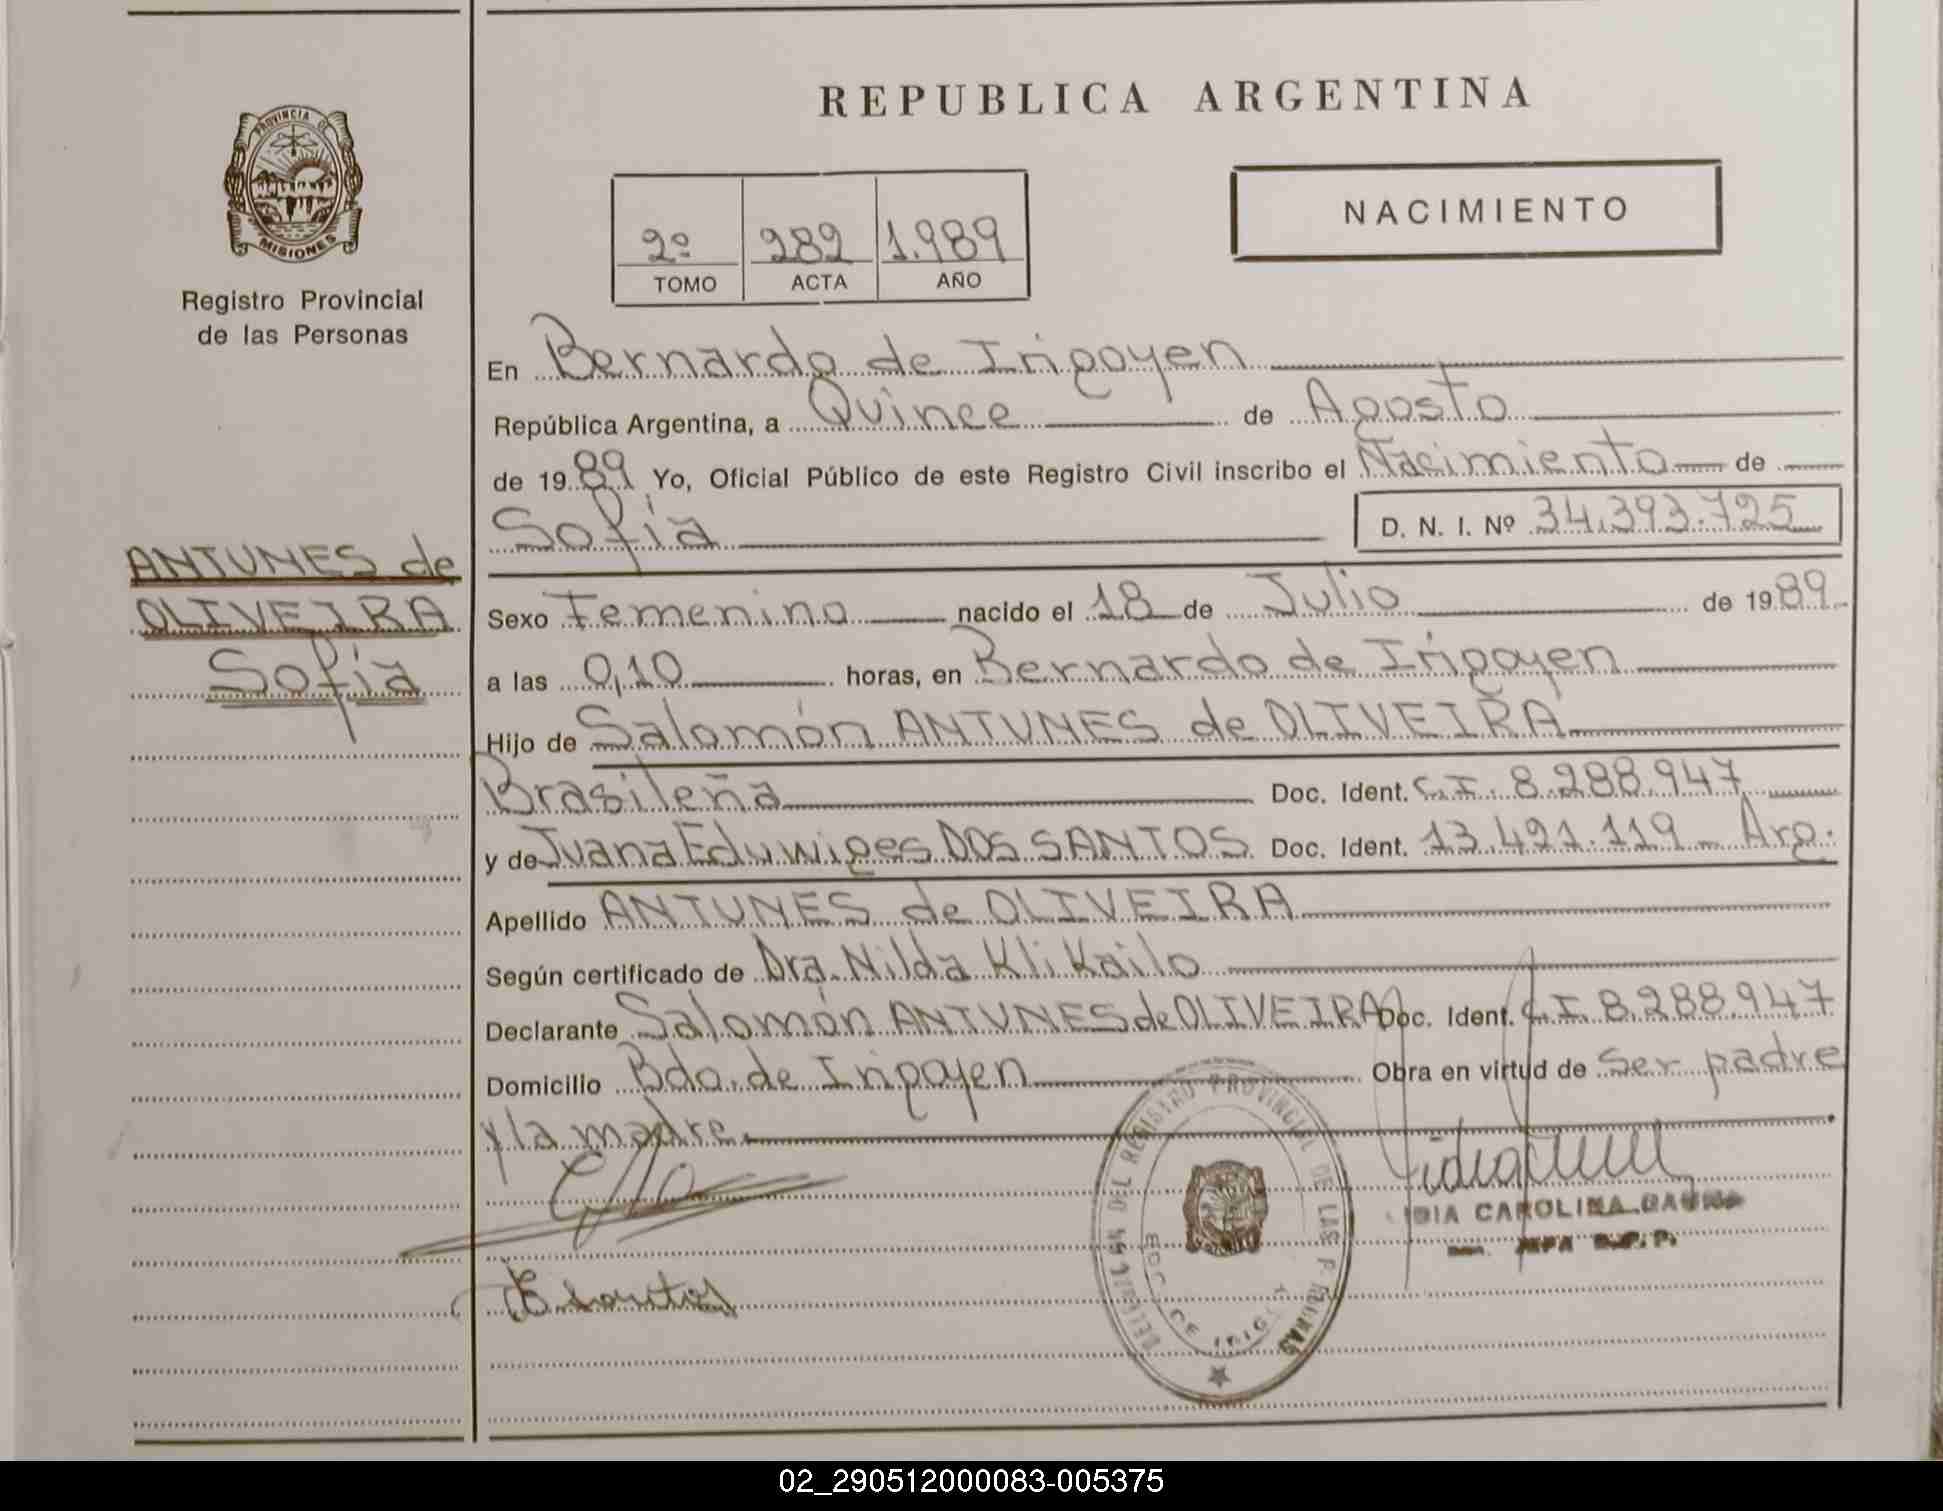 REPUBLICA ARGENTINA
PROVINCIA DE
MISIONES
Registro Provincial
de las Personas
2º 282 1.989
TOMO ACTA AÑO
NACIMIENTO
En Bernardo de Irigoyen
República Argentina, a Quince de Agosto
de 1989 Yo, Oficial Público de este Registro Civil inscribo el Nacimiento de
Sofía
D. N. I. Nº 34.393.725
ANTUNES de
OLIVEIRA
Sofía
Sexo Femenino nacido el 18 de Julio de 1989
a las 0,10 horas, en Bernardo de Irigoyen
Hijo de Salomón ANTUNES de OLIVEIRA
Brasileña Doc. Ident. C.I. 8.288.947
y de Juana Eduwiges DOS SANTOS Doc. Ident. 13.491.119 Arg.
Apellido ANTUNES de OLIVEIRA
Según certificado de Dra. Nilda Kli Kailo
Declarante Salomón ANTUNES de OLIVEIRA Doc. Ident. C.I. 8.288.947
Domicilio Bdo. de Irigoyen Obra en virtud de ser padre
y la madre.
DEL REGISTRO PROVINCIAL DE LAS
CAROLINA
02_290512000083-005375